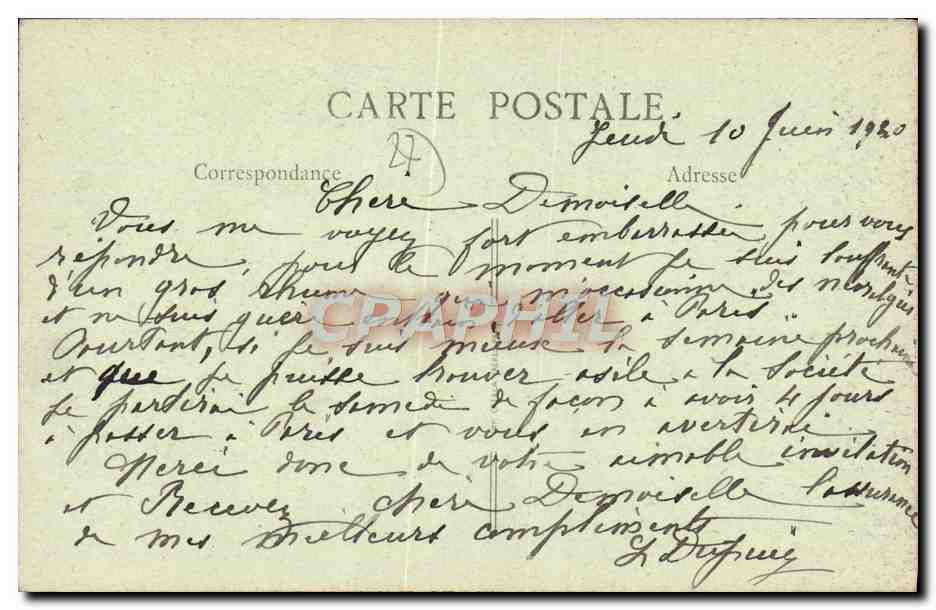 CARTE POSTALE
Jeudi 10 Juin 1920
27
Correspondance
Adresse
Chère Demoiselle
Vous me voyez fort embarrassée pour vous
répondre, pour le moment je suis souffrante
d'un gros rhume qui m'occasionne des nevralgies
et ne suis guère d'aller à Paris
Pourtant, si je suis mieux la semaine prochaine
et que je puisse trouver asile à la Société
je partirai le samedi de façon à avoir 4 jours
à passer à Paris et vous en avertirai.
Merci donc de votre aimable invitation
et Recevez chère Demoiselle l'assurance
de mes meilleurs compliments
L Dupuy
CPAPHIL